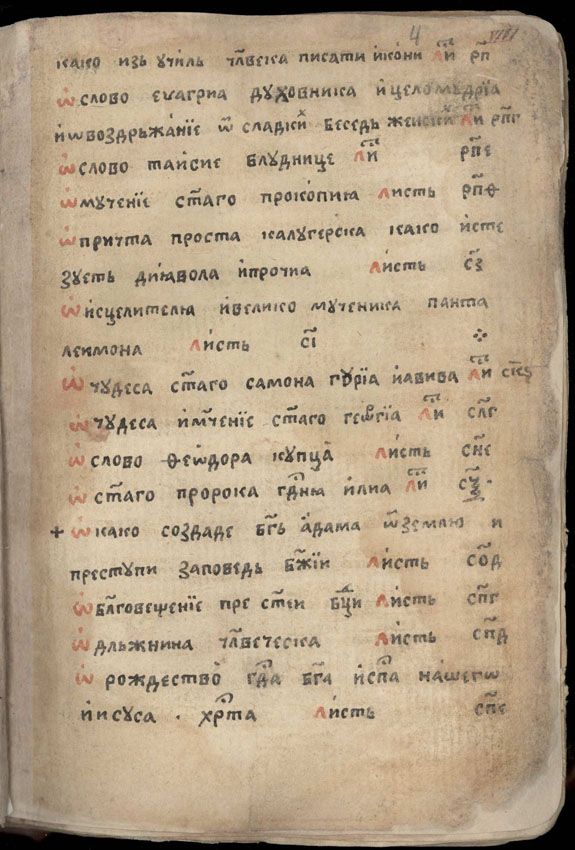 4 VIII
како изь училь чл҃века писати икони ли҃ рп҃
ѡ слово еѵагриа духовника и целомудрїа
и ѡ воздрьжанїе ѿ сладки беседь женски ли҃ рпг҃
ѡ слово таисие блуднице ли҃ рпе҃
ѡ мученїе ст҃аго прокопию листь рпѳ҃
ѡ причта проста калугерска како исте
зуеть диявола и прочиа листь сз҃
ѡ исцелителю и велико мученика панта
леимона листь сі҃
ѡ чудеса ст҃аго самона гурїа и авива ли҃
ѡ чудеса и мꙋченїе ст҃аго геѡргїа ли҃ слг҃
ѡ слово ѳеѡдора купца листь сне҃
ѡ ст҃аго пророка гд҃ню илиа ли҃
+ ѡ како создаде бг҃ь адама ѿ землю и
преступи заповедь бж҃їи листь сод҃
ѡ бл҃говещенїе пре ст҃еи бц҃и листь спг҃
ѡ дльжнина чл҃веческа листь спд҃
ѡ рождество гд҃а бг҃а и сп҃а нашегѡ
иисуса . хрт҃а листь спе҃